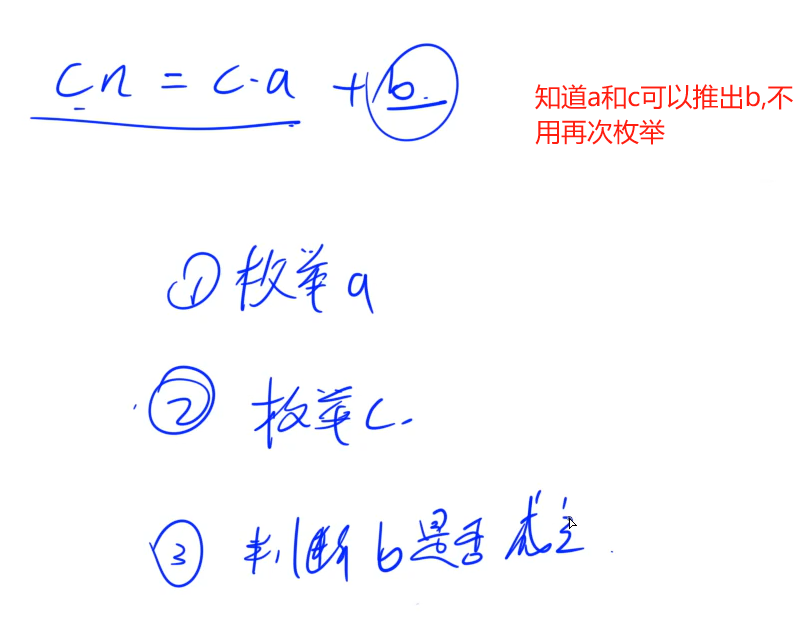 cn = c·a + b.
知道a和c可以推出b,不
用再次枚举
① 枚举a
② 枚举c.
③ 判断b是否成立